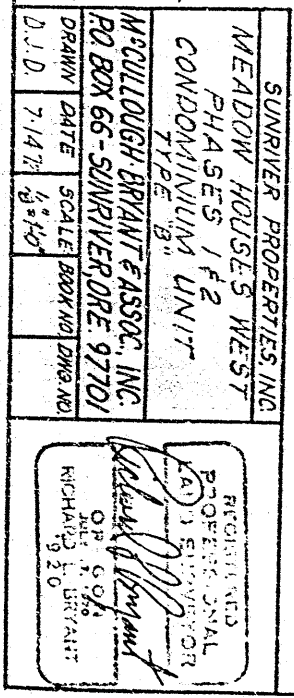 SUNRIVER PROPERTIES INC.
MEADOW HOUSES WEST
PHASES 1 & 2
CONDOMINIUM UNIT
TYPE "B"
McCULLOUGH BRYANT & ASSOC., INC.
P.O. BOX 66 - SUNRIVER, ORE 97701
DRAWN DATE SCALE BOOK NO. DWG. NO.
D.J.D.
REGISTERED
PROFESSIONAL
LAND SURVEYOR
OREGON
RICHARD L. BRYANT
920